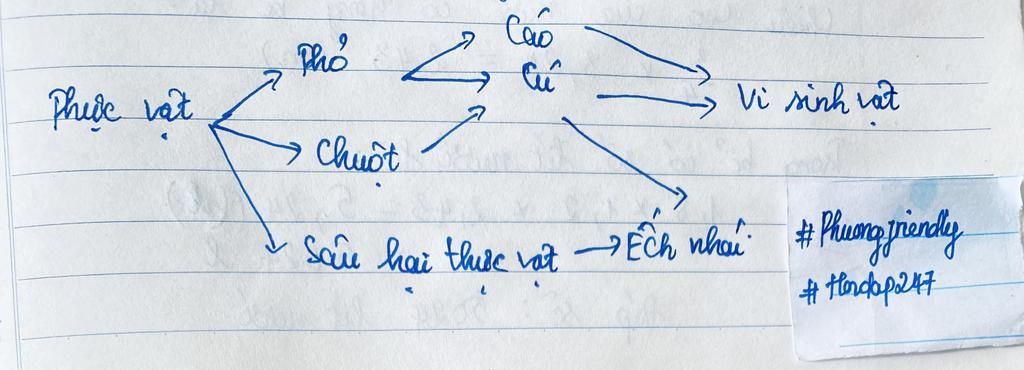 Cáo
Thỏ
Cú
Thực vật
Vi sinh vật
Chuột
Sâu hại thực vật
Ếch nhái
#Phuongfriendly
#Hoidap247